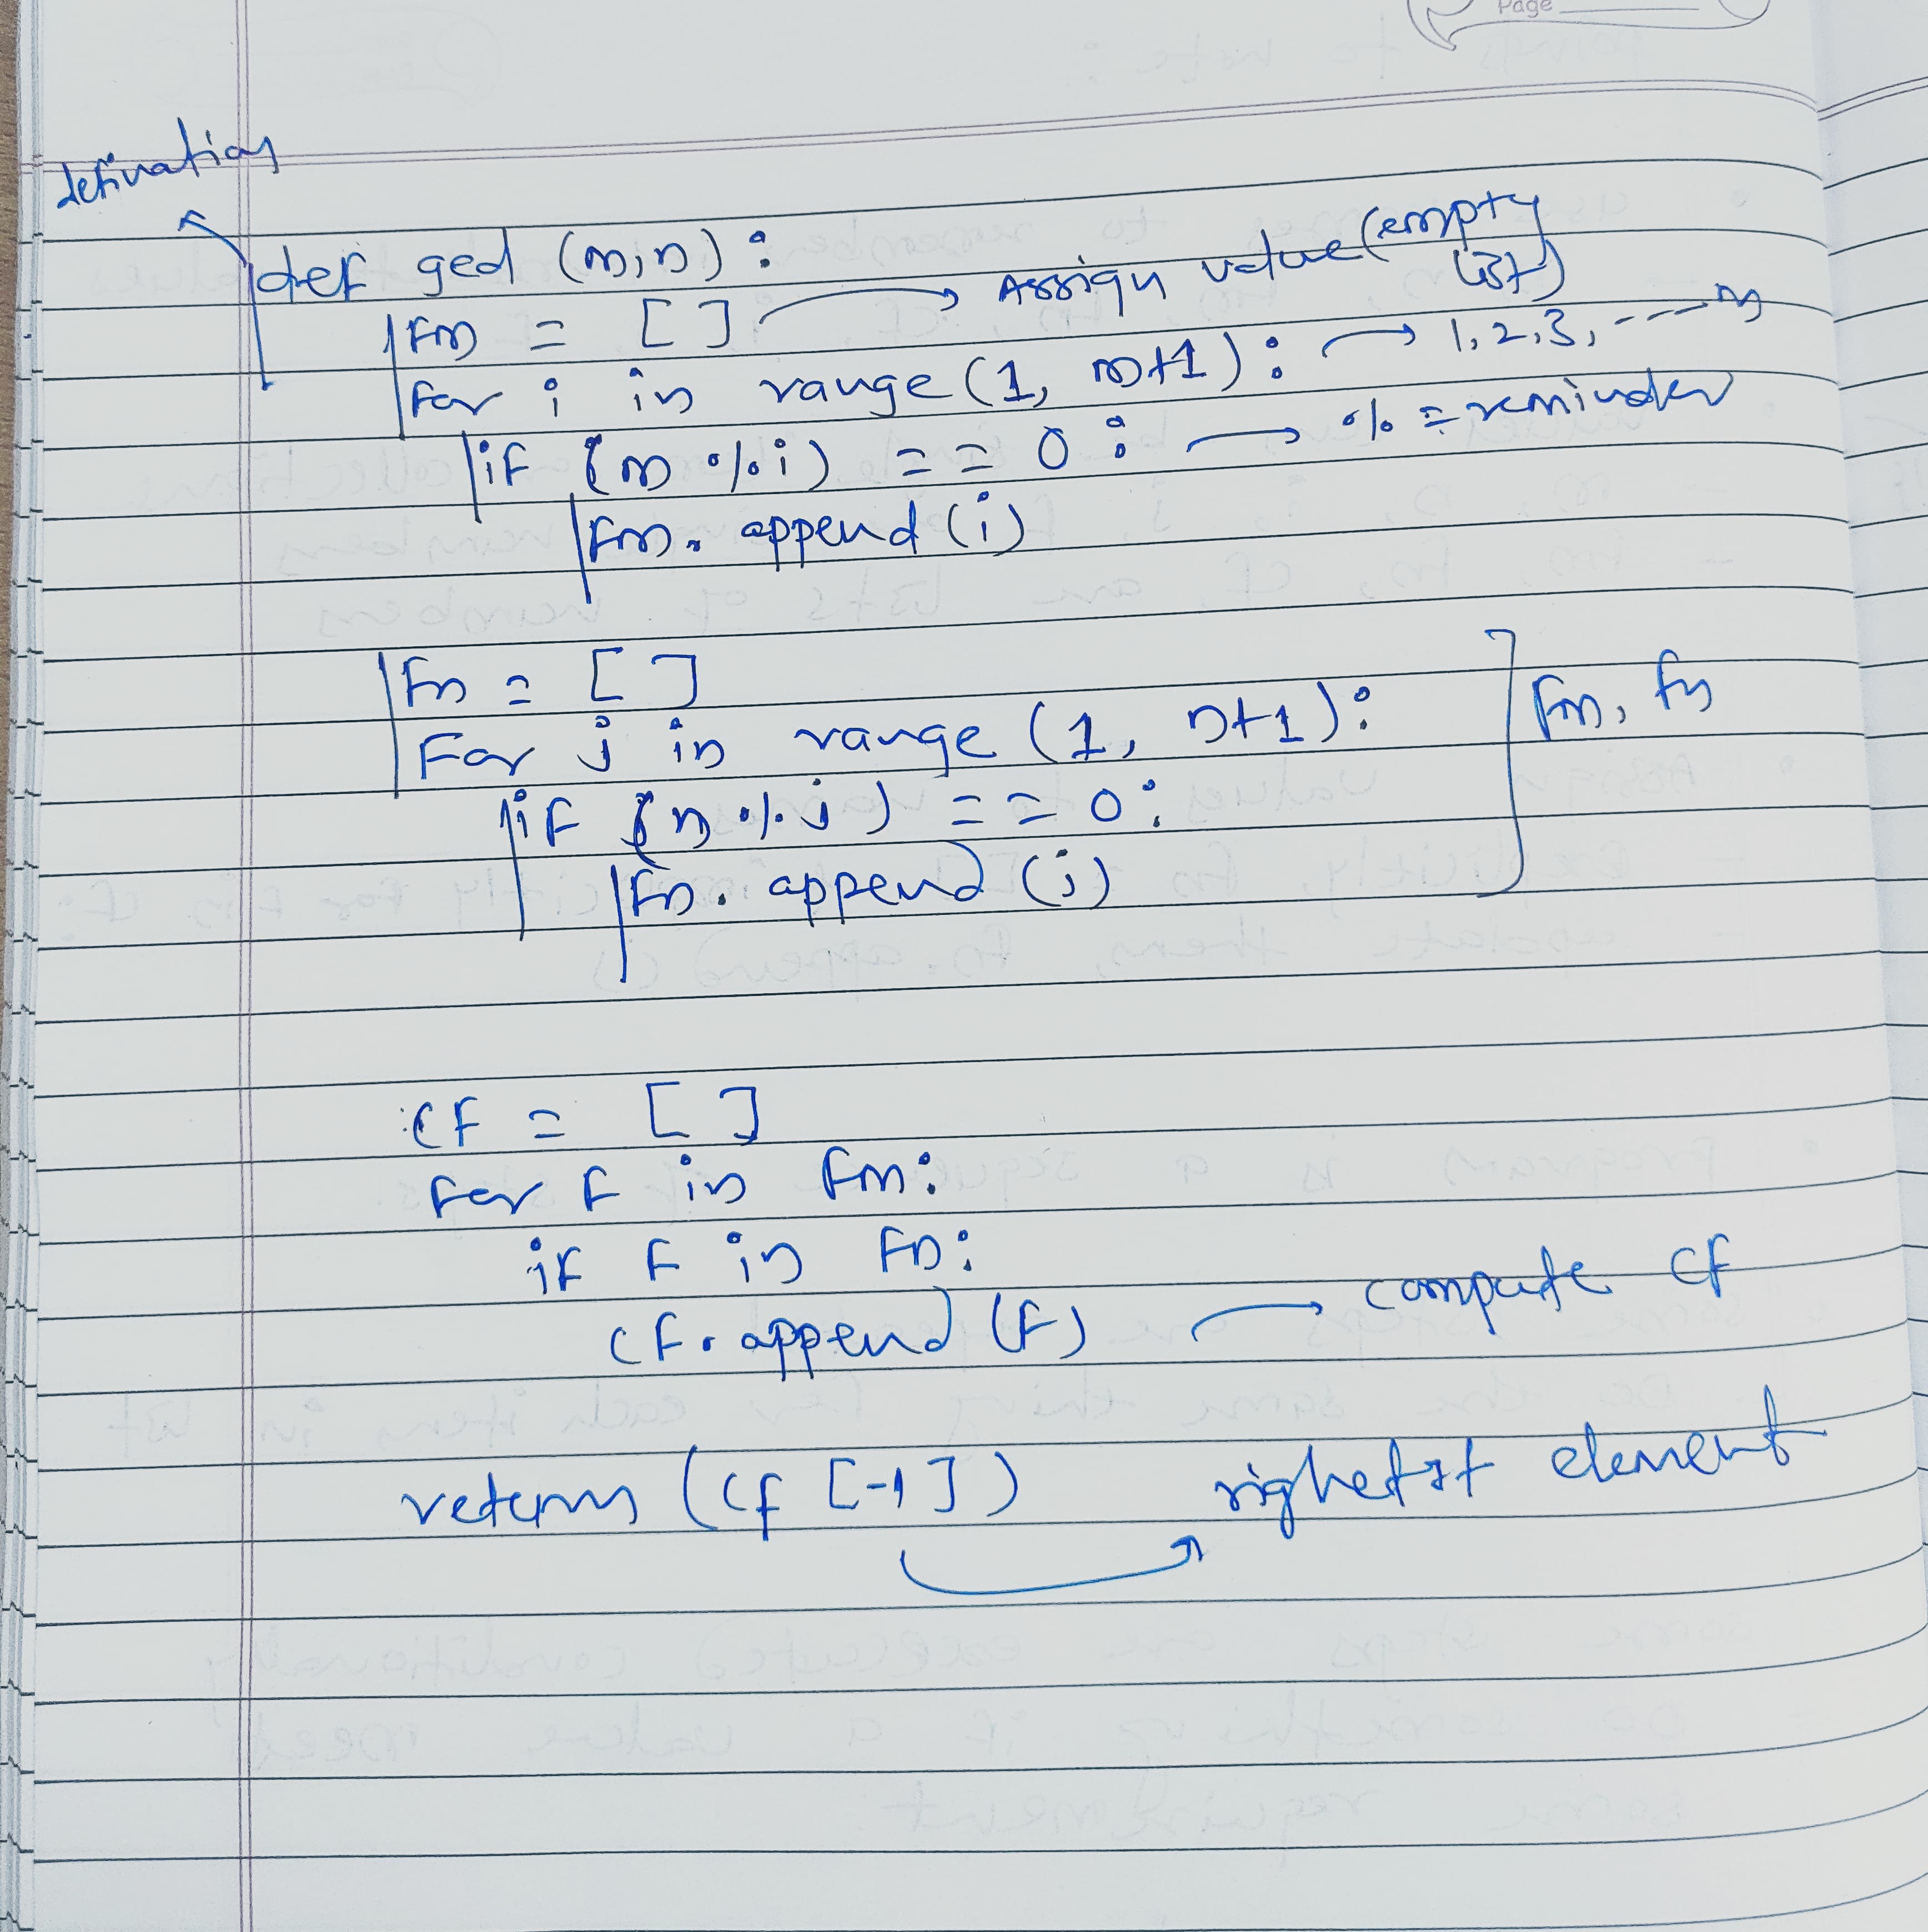 Page
defination
def gcd (m,n) :
fm = [ ] → Assign value (empty list)
for i in range (1, m+1) : → 1, 2, 3, ---- m
if (m % i) == 0 : → % = reminder
fm. append (i)
fn = [ ]
For j in range (1, n+1) :
if (n % j) == 0 :
fn. append (j)
fm, fn
cf = [ ]
for f in fm :
if f in fn :
cf. append (f) → compute cf
return (cf [-1]) → element